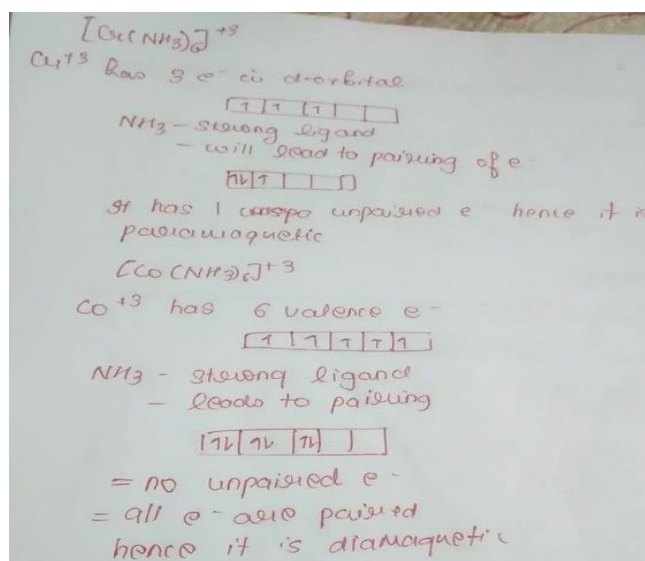 [Cr(NH3)6]+3
Cr+3 has 3 e- in d-orbital
1 1 1
NH3 - strong ligand
- will lead to pairing of e-
1L 1
It has 1 unpaired e- hence it is
paramagnetic
[CO(NH3)6]+3
CO+3 has 6 valence e-
1 1 1 1 1
NH3 - strong ligand
- leads to pairing
1L 1L 1L
= no unpaired e-
= all e- are paired
hence it is diamagnetic